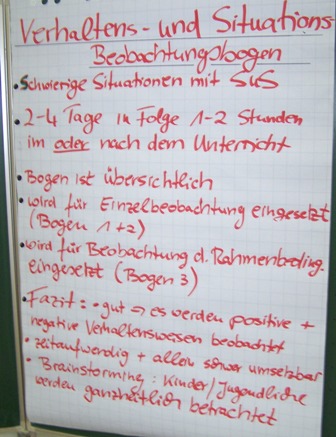 Verhaltens- und Situations
Beobachtungsbogen
• Schwierige Situationen mit SuS
• 2-4 Tage in Folge 1-2 Stunden
im oder nach dem Unterricht
• Bogen ist übersichtlich
• wird für Einzelbeobachtung eingesetzt
(Bogen 1+2)
• wird für Beobachtung d. Rahmenbeding.
eingesetzt (Bogen 3)
• Fazit: • gut => es werden positive +
negative Verhaltensweisen beobachtet
• zeitaufwendig + allein schwer umsetzbar
• Brainstorming: Kinder/Jugendliche
werden ganzheitlich betrachtet